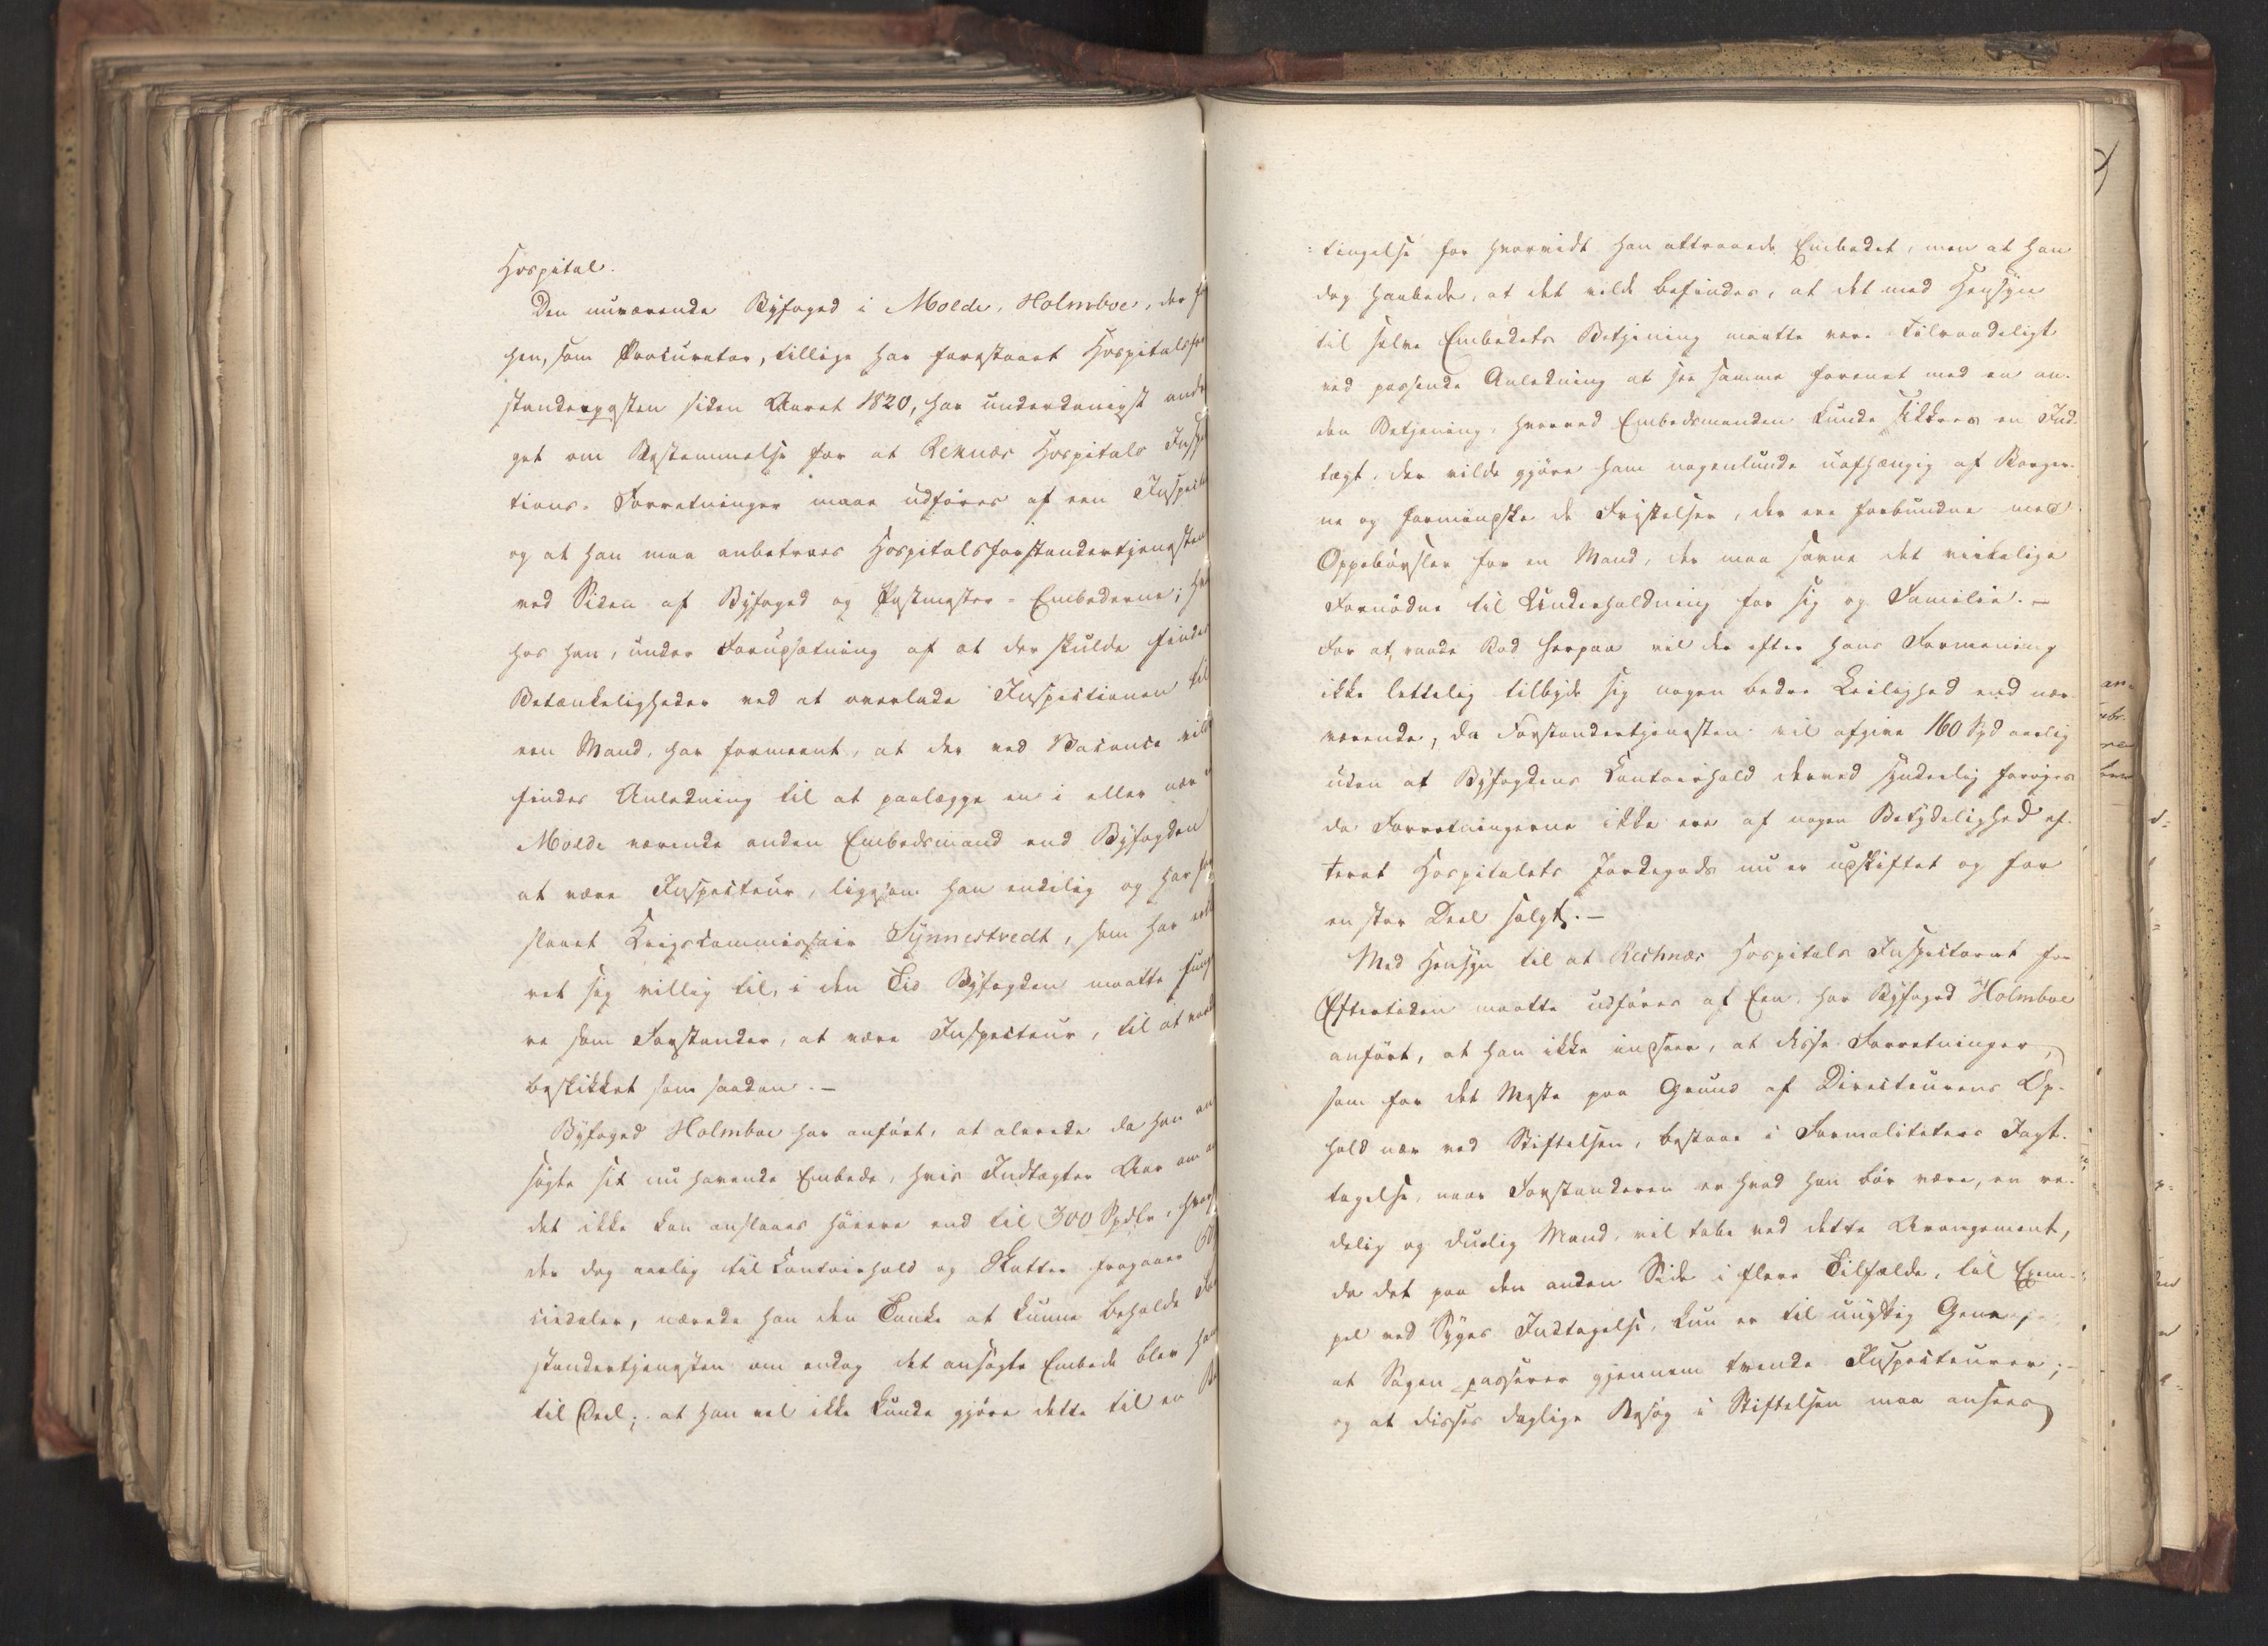 Hospital.
Den nuværende Byfoged i Molde, Holmboe, der
hen, som Procurator, tillige har forestaaet Hospitalsfor
standerposten siden Aaret 1820, har underdanigst
get om Bestemmelse for at Reknæs Hospitals Insp
tions-Forretninger maae udføres af een Inspect
og at han maa anbetroes Hospitalsforstandertjenesten
ved Siden af Byfoged og Postmester-Embederne;
hos han, under Forudsætning af at der skulde findes
Betænkeligheder ved at overlade Inspectionen til
een Mand, har formeent, at der ved Vacance vil
findes Anledning til at paalægge en i eller nær
Molde værende anden Embedsmand end Byfogden
at være Inspecteur, ligesom han endelig og har
slaaet Krigscommissair Synnestvedt, som har
ret sig villig til, i den Tid Byfogden maatte funge
re som Forstander, at være Inspecteur, til at vorde
beskikket som saadan.—
Byfoged Holmboe har anført, at alerede da han
søgte sit nu havende Embede, hvis Indtægter Aar om
det ikke kan anslaaes høiere end til 300 Spdlr,
der dog aarlig til Contoirhold og Skatter fragaaer
ciedaler, nærede han den Tanke at kunne beholde
standertjenesten om endog det ansøgte Embede blev ham
til Deel; at han vel ikke kunde gjøre dette til en Be
:tingelse for hvorvidt han attraaede Embedet, men at han
dog haabede, at det vilde befindes, at det med Hensyn
til selve Embedets Betjening maatte være tilraadeligt
ved passende Anledning at see samme forenet med en an-
den Betjening, hvorved Embedsmanden kunde sikkres en Ind-
tægt, der vilde gjøre ham nogenlunde uafhængig af Borger-
ne og formindske de Fristelser, der ere forbundne med
Oppebørsler for en Mand, der maa savne det virkelige
Fornødne til Underholdning for sig og Familie.—
For at raade Bod herpaa vil der efter hans Formening
ikke lettelig tilbyde sig nogen bedre Leilighed end nær-
værende, da Forstandertjenesten vil afgive 160 Spd aarlig
uden at Byfogdens Contoirhold derved synderlig forøges
da Forretningerne ikke ere af nogen Betydelighed ef-
terat Hospitalets Jordegods nu er udskiftet og for
en stor Deel solgt.—
Med Hensyn til at Recknæs Hospitals Inspectorat for
Eftertiden maatte udføres af Een, har Byfoged Holmboe
anført, at han ikke indseer, at disse Forretninger,
som for det Meste paa Grund af Directeurens Op-
hold nær ved Stiftelsen, bestaae i Formaliteters Iagt-
tagelse, naar Forstanderen er hvad han bør være, en re-
delig og duelig Mand, vil tabe ved dette Arrangement,
da det paa den anden Side i flere Tilfælde, til Exem-
pel ved Syges Indtagelse, kun er til unyttig Gene,
at Sagen passerer gjennem tvende Inspecteurer;—
og at disses daglige Besøg i Stiftelsen maa ansees